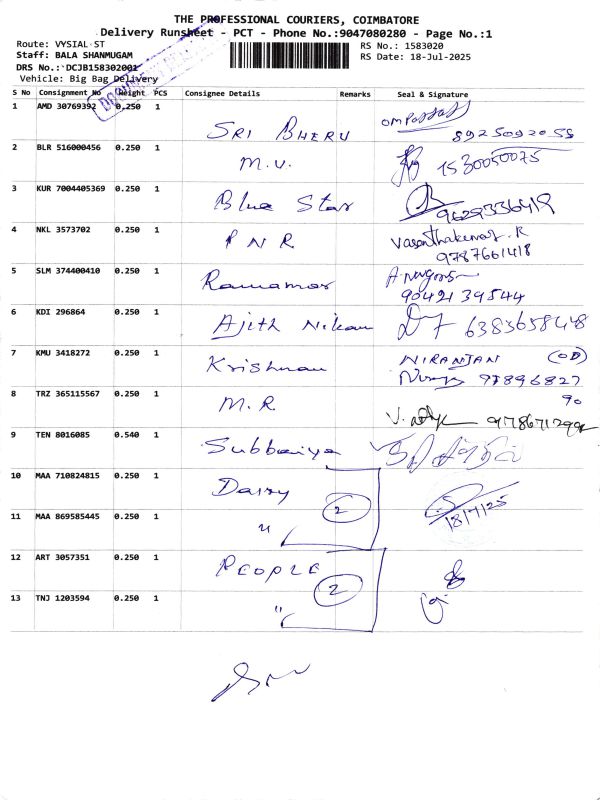 THE PROFESSIONAL COURIERS, COIMBATORE
Delivery Runsheet - PCT - Phone No.:9047080280 - Page No.:1
Route: VYSIAL ST
Staff: BALA SHANMUGAM
DRS No.: DCJB158302001
Vehicle: Big Bag Delivery
RS No.: 1583020
RS Date: 18-Jul-2025
S No Consignment No Weight PCS Consignee Details Remarks Seal & Signature
1 AMD 30769392 0.250 1 SRI BHERU 8925092055
2 BLR 516000456 0.250 1 M.V. 1530050075
3 KUR 7004405369 0.250 1 Blue Star 9629336419
4 NKL 3573702 0.250 1 PNR Vasanthakumar.R
9787661418
5 SLM 374400410 0.250 1 9042139544
6 KDI 296864 0.250 1 Ajith 6383658448
7 KMU 3418272 0.250 1 Krishnan NIRANJAN
97896827
90
8 TRZ 365115567 0.250 1 M.R.
9 TEN 8016085 0.540 1 Subbaiya
10 MAA 710824815 0.250 1 Dairy
2
18/7/25
11 MAA 869585445 0.250 1 "
12 ART 3057351 0.250 1 PEOPLE
2
13 TNJ 1203594 0.250 1 "